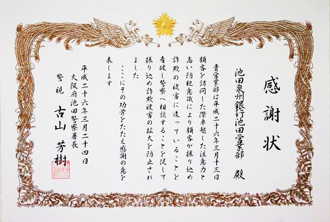 感謝状
池田泉州銀行池田営業部 殿
貴営業部は平成二十六年三月十三日
顧客を訪問した際卓越した注意力と
高い防犯意識により顧客が振り込め
詐欺の被害に遭っていることを
看破し警察へ相談することを促して
振り込め詐欺被害の拡大を防止され
ました
ここにその功労をたたえ感謝の意を
表します
平成二十六年三月二十四日
大阪府池田警察署長
警視 古山芳樹